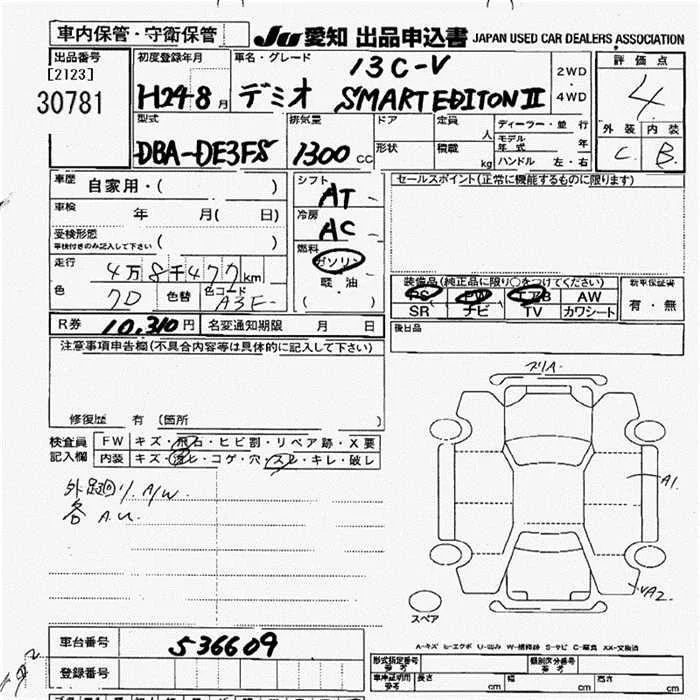 車内保管・守衛保管
Ju 愛知 出品申込書 JAPAN USED CAR DEALERS ASSOCIATION
出品番号
[2123]
30781
初度登録年月
H24-8月
車名・グレード
13C-V
デミオ SMART EDITON II
2WD
・
4WD
評価点
4
外装 内装
C B
型式
DBA-DE3FS
排気量
1300 CC
ドア
形状
定員 人
積載 kg
ディーラー・並行
モデル年式 年
ハンドル 左・右
車歴 自家用・( )
車検 年 月( 日)
受検形態
車検付きのみ記入して下さい ( )
走行 4万8千477km
色 色替 色コード
シフト
AT
冷房
AC
燃料
ガソリン
軽油
( )
セールスポイント(正常に機能するものに限ります)
装備品(純正品に限り○をつけてください)
PS PW エアB AW
SR ナビ TV カワシート
新車保証書
有・無
後日品
R券 10,310円 名変通知期限 月 日
注意事項申告欄(不具合内容等は具体的に記入して下さい)
修復歴 有 (箇所 )
検査員記入欄
FW キズ・飛石・ヒビ割・リペア跡・X要
内装 キズ・汚レ・コゲ・穴・スレ・キレ・破レ
A/W
各 A.U.
A1
A2
スペア
A-キズ E-エクボ U-凹み W-補修跡 S-サビ C-腐食 XX-交換済
車台番号 536609
登録番号
型式指定番号 参考
類別区分番号 参考
車庫証明用 参考 長さ cm 幅 cm 高さ cm